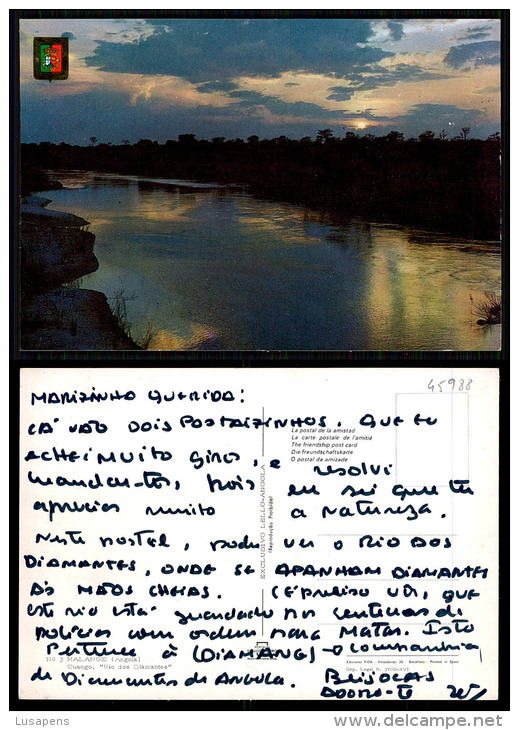 45988
MARIZINHO QUERIDA:
CÁ VÃO DOIS POSTAIZINHOS, QUE EU
La postal de la amistad
La carte postale de l'amitié
The friendship post card
Die freundschaftskarte
O postal da amizade
ACHEI MUITO GIROS, e resolvi
mandar-tos, pois eu sei que tu
aprecias muito a natureza.
EXCLUSIVO LELLO-ANGOLA
(Reprodução Proibida)
Neste postal, pode ver o RIO DOS
DIAMANTES, ONDE SE APANHAM DIAMANTES
ÀS MÃOS CHEIAS. (É PRECISO VER, QUE
este rio está guardado por centenas de
polícias com ordem para MATAR. Isto
Pertence à (DIAMANG) - a companhia
Nº 3 MALANGE (Angola)
Cuango, "Rio dos Diamantes"
de Diamantes de Angola.
Ediciones FISA - Palaudarias, 26 - Barcelona - Printed in Spain
Dep. Legal B. 3706-XVI
BEIJOCAS
ADORO-TE
Lusapens
www.delcampe.net